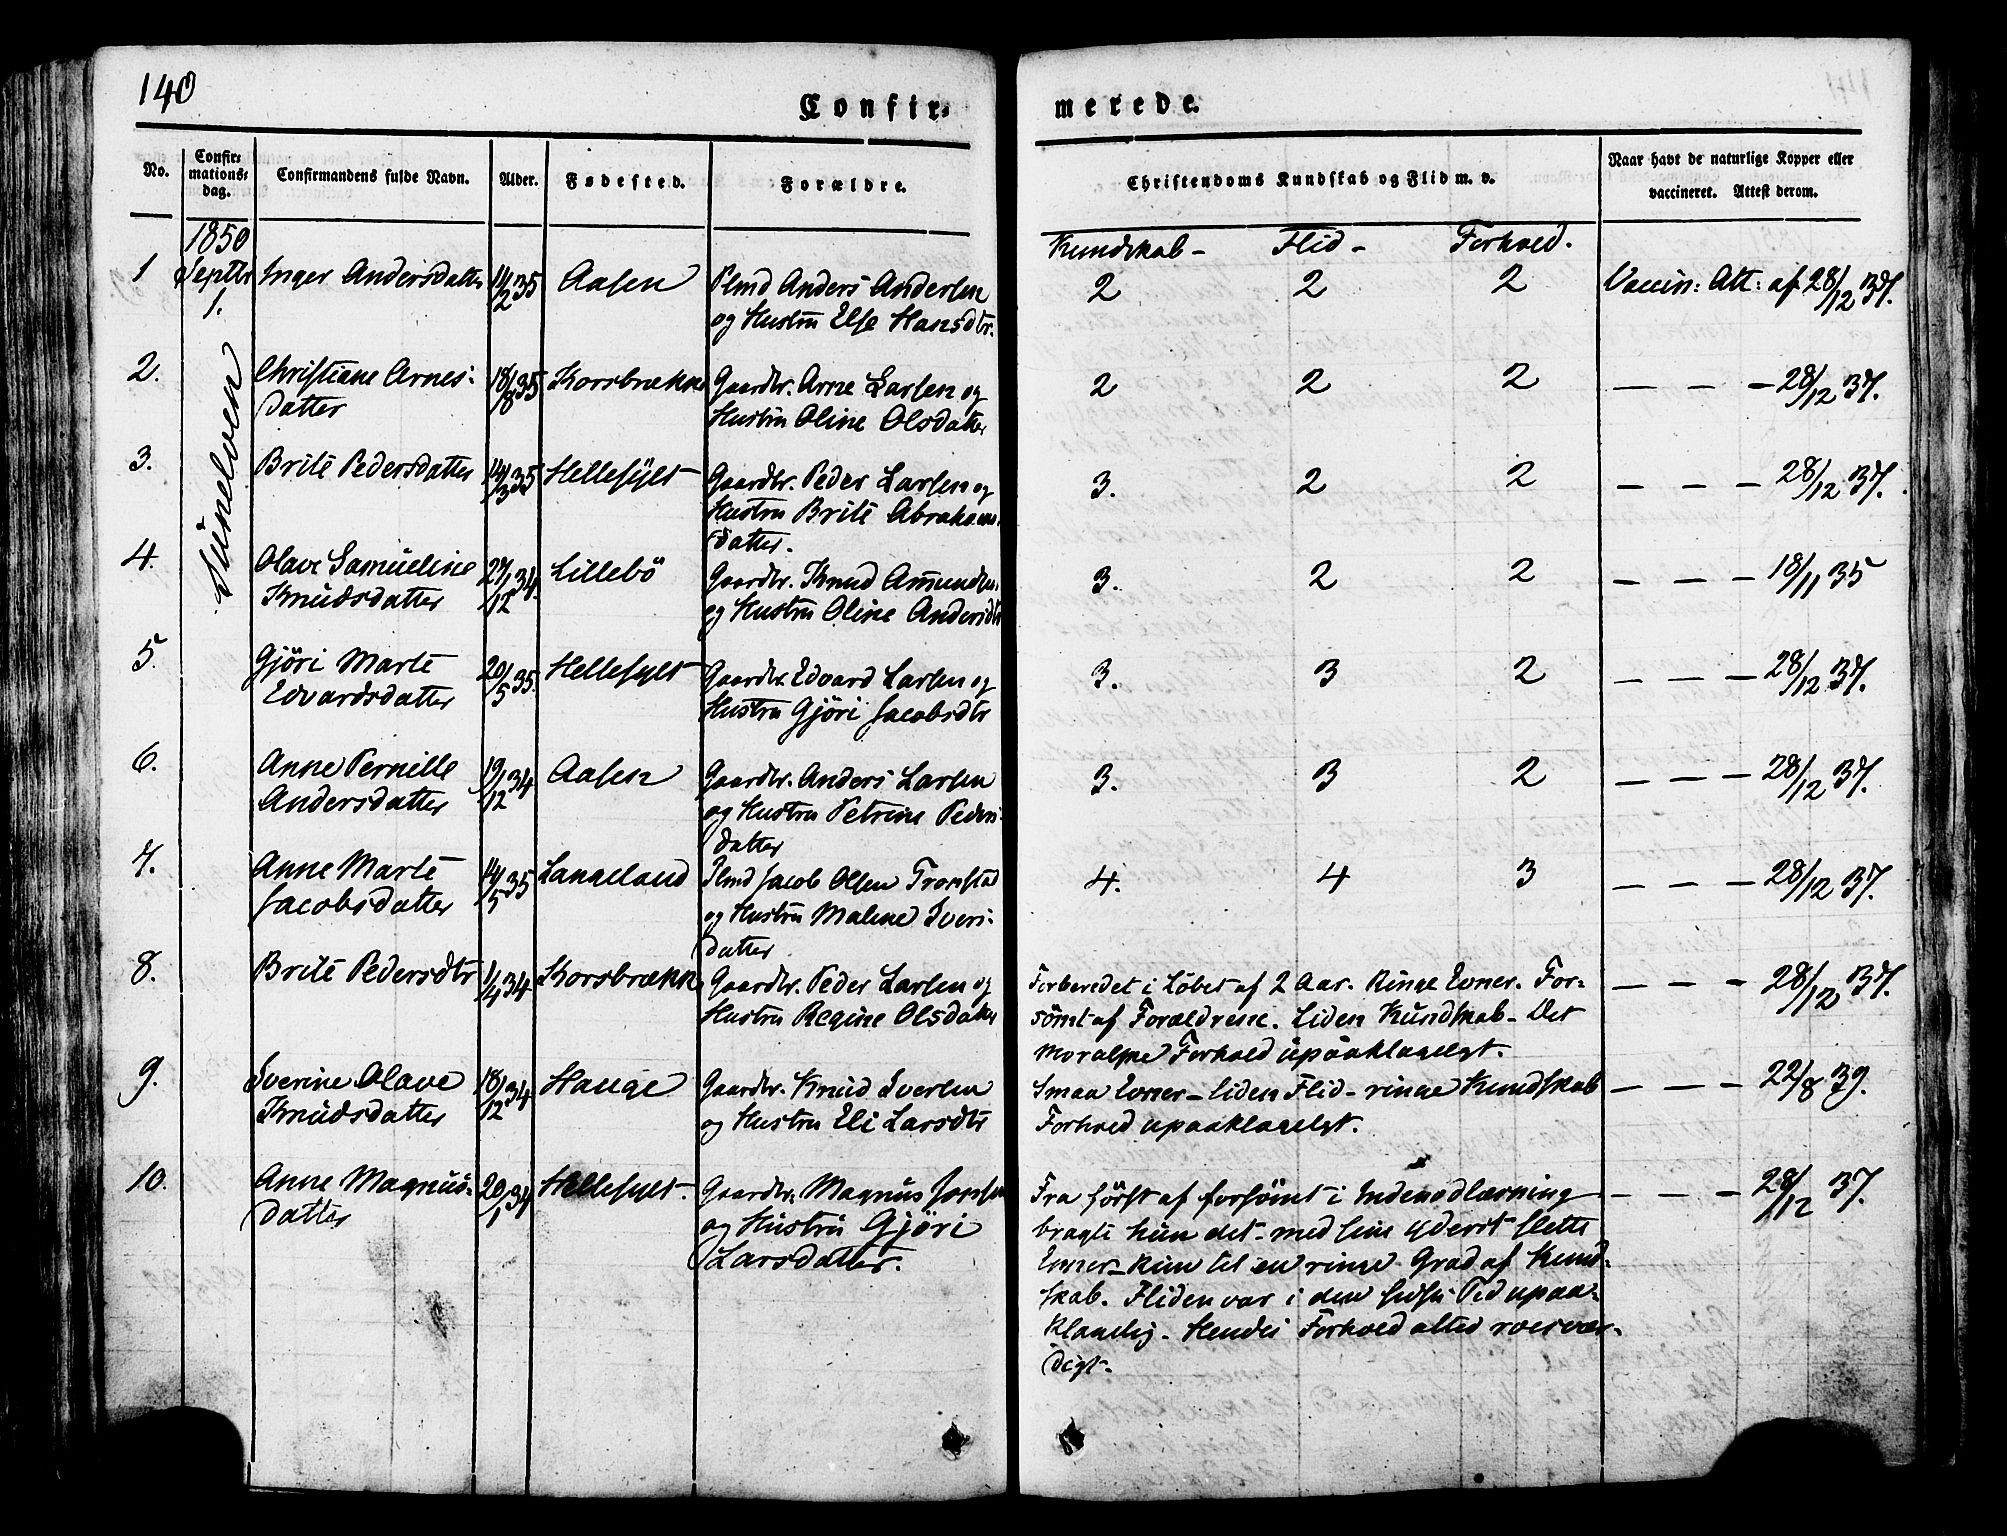 140
Confir-
merede.
No.
Confir-
mations-
dag.
Confirmandens fulde Navn.
Alder.
Fødested.
Forældre.
Christendoms Kundskab og Flid m. v.
Naar havt de naturlige Kopper eller
vaccineret. Attest derom.
1850
Kundskab - Flid - Forhold.
1 Septbr Inger Andersdatter 11/2 35 Aasen Anders Andersen 2 2 2 Vaccin: Att: af 28/12 37.
1. og Hustru Else Hansdtr.
Sunelven
2. Christiane Arnes- 18/8 35 Korsbrække Gaardbr. Arne Larsen og 2 2 2 — — — 28/12 37.
datter Hustru Oline Olsdatter
3. Brite Pedersdatter 14/3 35 Hellesylt Gaardbr. Peder Larsen og 3. 2 2 — — — 28/12 37.
Hustru Brite Abrahams-
datter.
4. Olave Samueline 27/12 34. Lillebö Gaardbr. Knud Amundsen 3. 2 2 — — — 18/11 35
Knudsdatter og Hustru Oline Andersdtr
5. Gjöri Marte 20/5 35. Hellesylt Gaardbr. Edvard Larsen og 3. 3 2 — — — 28/12 37.
Edvardsdatter Hustru Gjöri Jacobsdtr
6. Anne Pernille 19/12 34 Aasen Gaardbr. Anders Larsen 3. 3 2 — — — 28/12 37.
Andersdatter og Hustru Petrine Peders-
datter
7. Anne Marte 14/5 35 Langeland Jacob Olsen Tronstad 4. 4 3 — — — 28/12 37.
Jacobsdatter og Hustru Malene Ivers-
datter
8. Brite Pedersdtr 1/4 34 Korsbrække Gaardbr. Peder Larsen og Forberedet i Löbet af 2 Aar. Ringe Evner. For- — — — 28/12 37.
Hustru Regine Olsdatter sömt af Forældrene. Liden Kundskab - Det
moralske Forhold upaaklageligt.
9. Iverine Olave 18/12 34 Hauge Gaardbr. Knud Iversen Smaa Evner - liden Flid - ringe Kundskab — — — 22/8 39.
Knudsdatter og Hustru Eli Larsdtr Forhold upaaklageligt.
10. Anne Magnus- 20/1 34 Hellesylt. Gaardbr. Magnus Fra först af forsömt i Indenadlæsning — — — 28/12 37.
datter og Hustru Gjöri bragte hun det - med sine yderst slette
Larsdatter. Evner - kun til en ringe Grad af Kund-
skab. Fliden var i den sidste Tid upaa-
klagelig - Hendes Forhold altid roesvær-
digt.